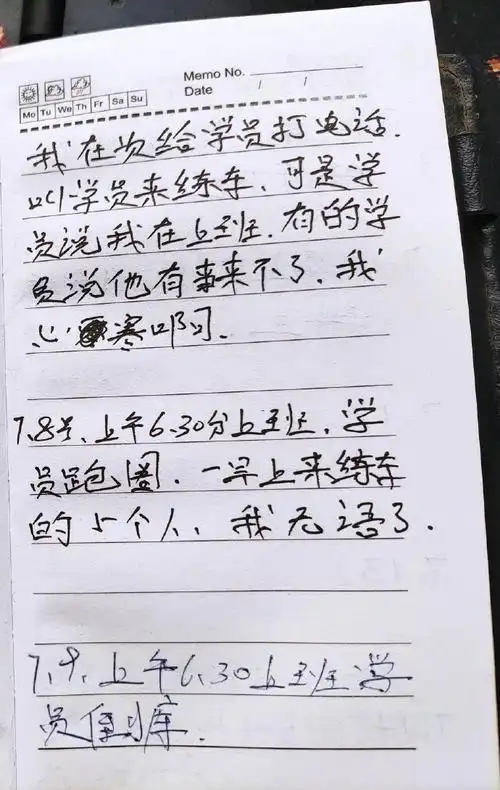 Memo No.
Date / /
Mo Tu We Th Fr Sa Su
我在次给学员打电话.
叫学员来练车、可是学
员说我在上班.有的学
员说他有事来不了.我
心寒啊.
7.8号、上午6.30分上班.学
员跑圈.一早上来练车
的5个人、我无语了.
7.9.上午6.30上班学
员倒库.